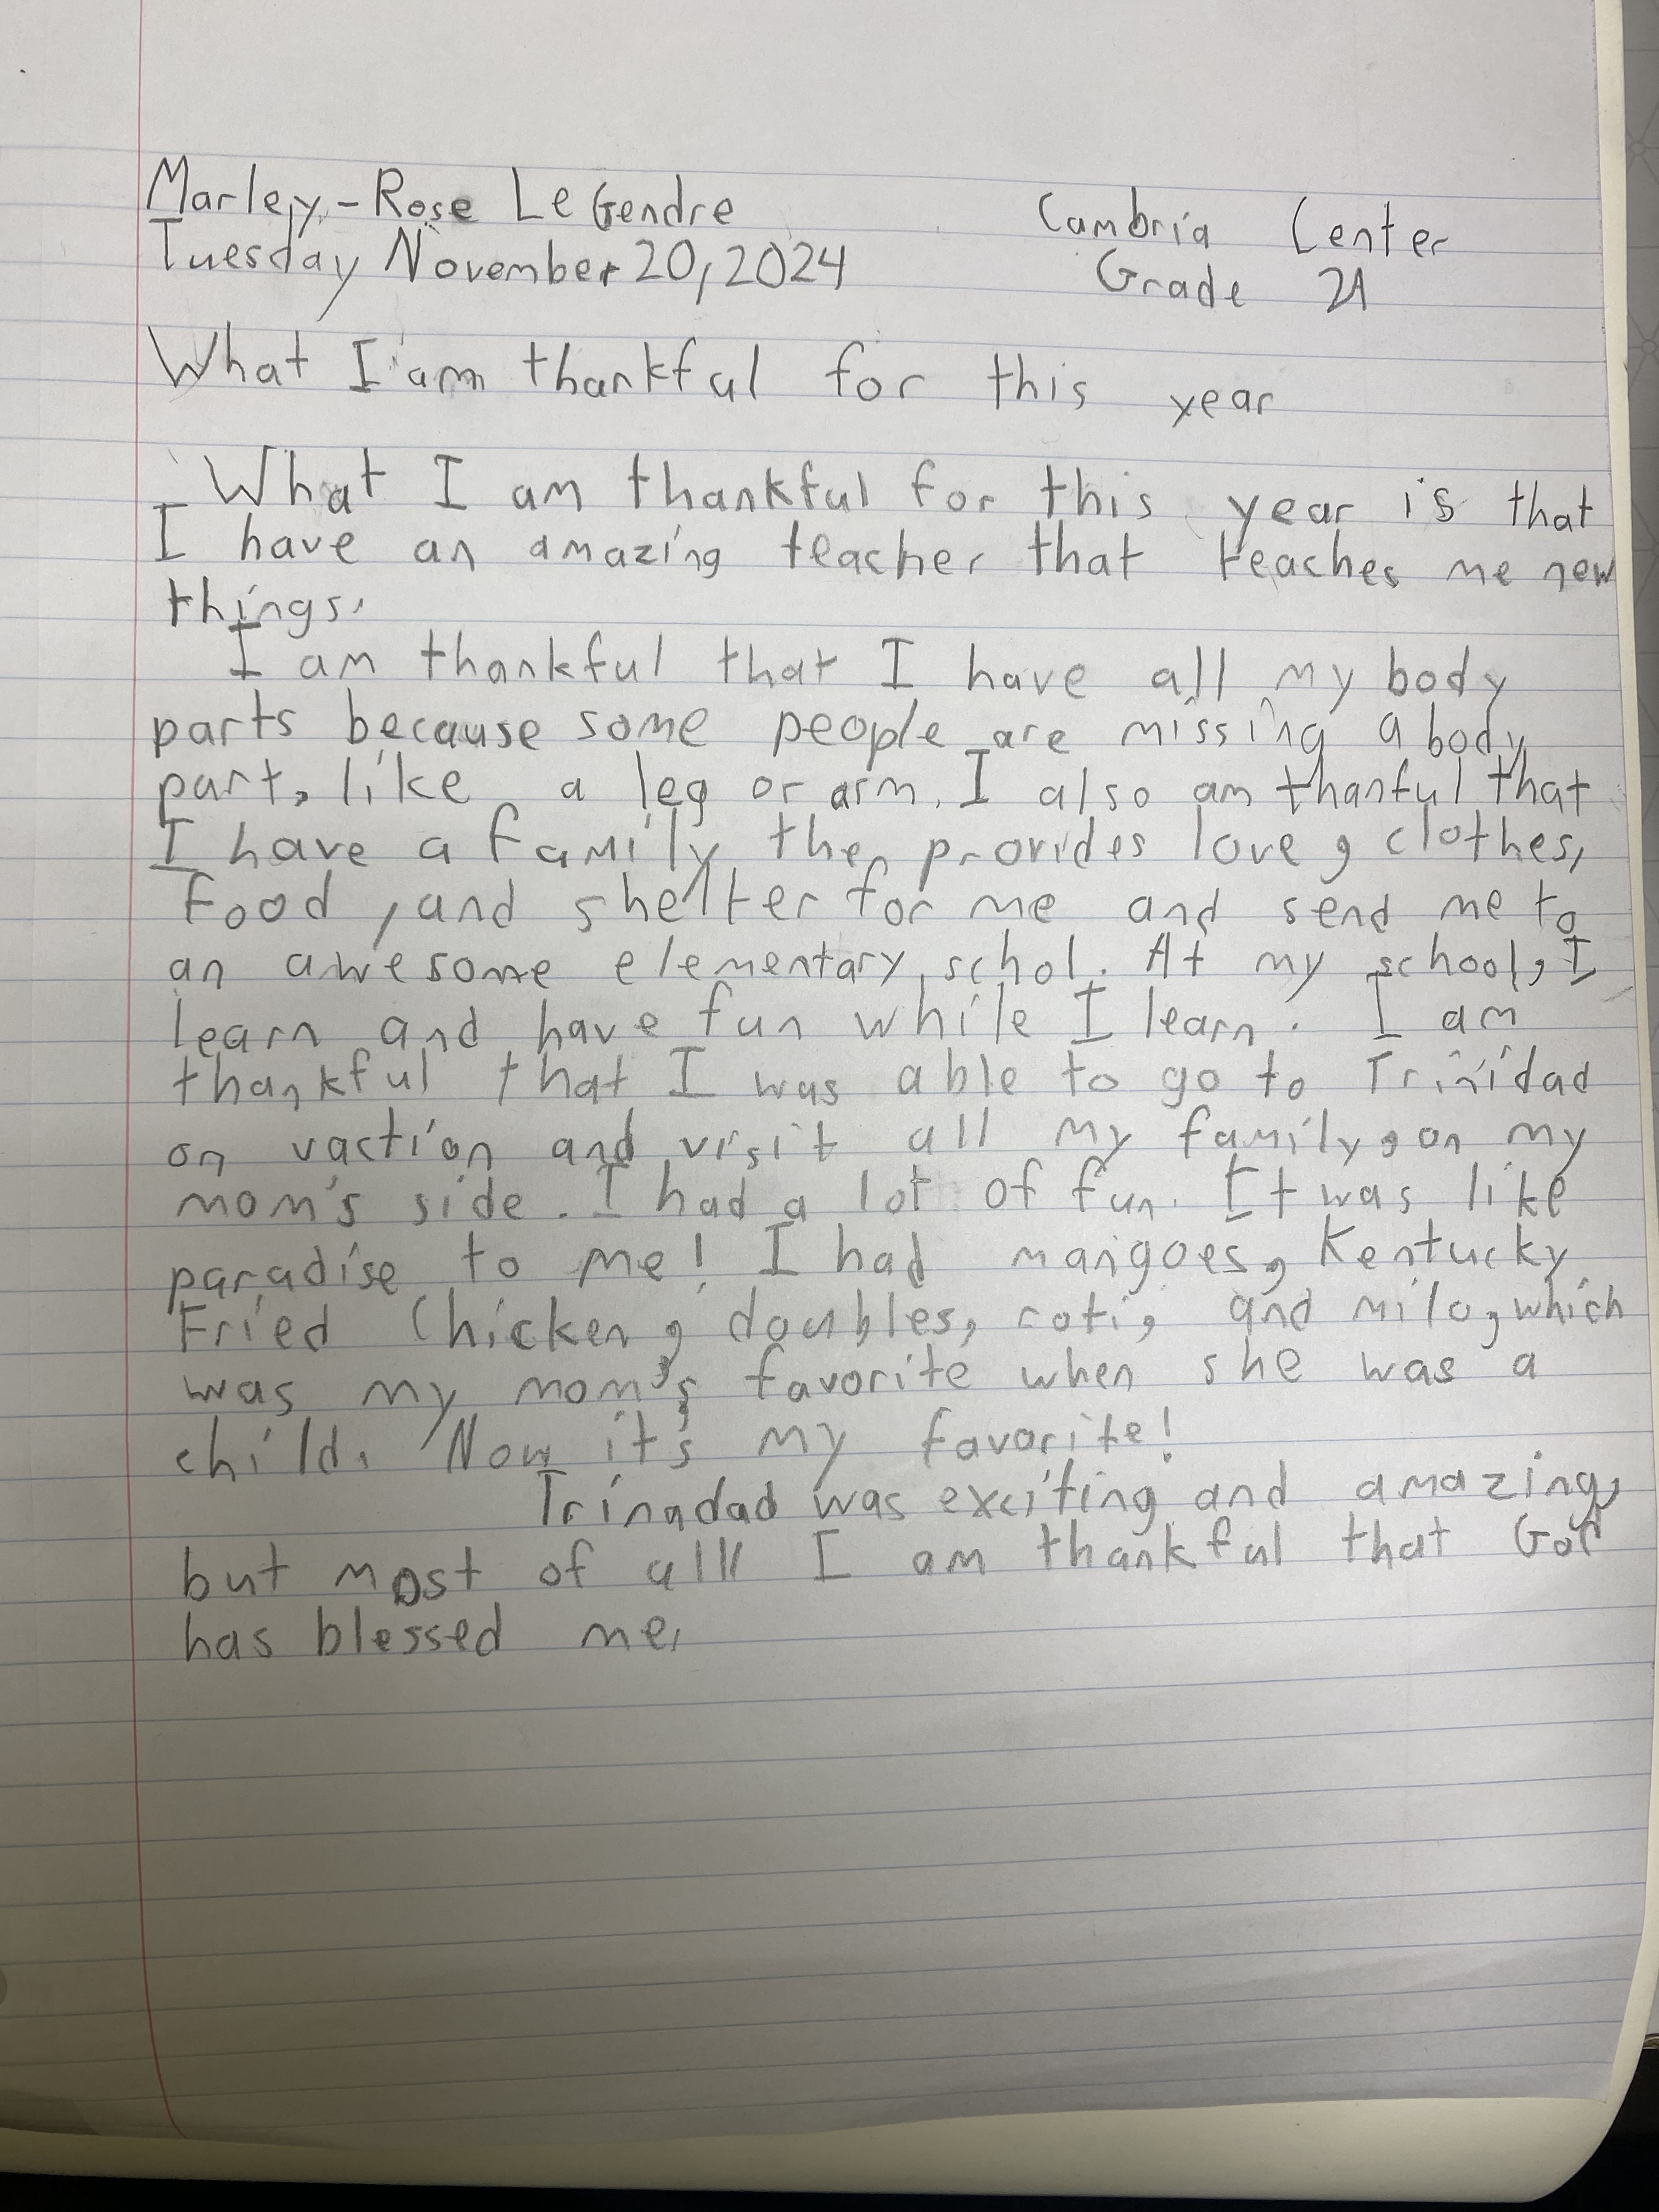 Marley-Rose LeGendre Cambria Center
Tuesday November 20, 2024 Grade 21
What I am thankful for this year
What I am thankful for this year is that
I have an amazing teacher that teaches me new
things.
I am thankful that I have all my body
parts because some people are missing a body
part, like a leg or arm. I also am thanful that
I have a family the provides love, clothes,
food, and shelter for me and send me to
an awesome elementary schol. At my school, I
learn and have fun while I learn. I am
thankful that I was able to go to Trinidad
on vaction and visit all my family, on my
mom's side. I had a lot of fun. It was like
paradise to me! I had mangoes, Kentucky
Fried Chicken, doubles, roti, and milo, which
was my mom's favorite when she was a
child. Now it's my favorite!
Trinadad was exciting and amazing,
but most of all I am thankful that God
has blessed me.